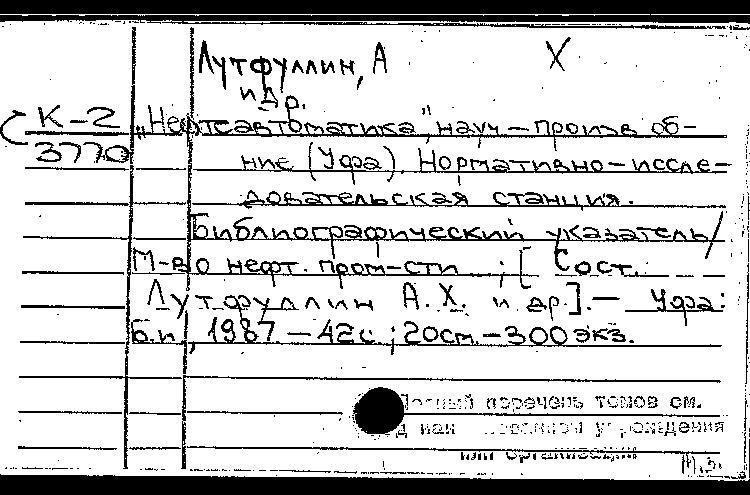 Лутфуллин, А Х
и др.
К-2 „Нефтеавтоматика", науч-произв об-
3770 ние (Уфа). Нормативно-иссле-
довательская станция.
Библиографический указатель/
М-во нефт. пром-сти ; [Сост.
Лутфуллин А. Х. и др].— Уфа:
Б.и., 1987.—42с.; 20см.—300 экз.
перечень томов см.
или организации
М.З.